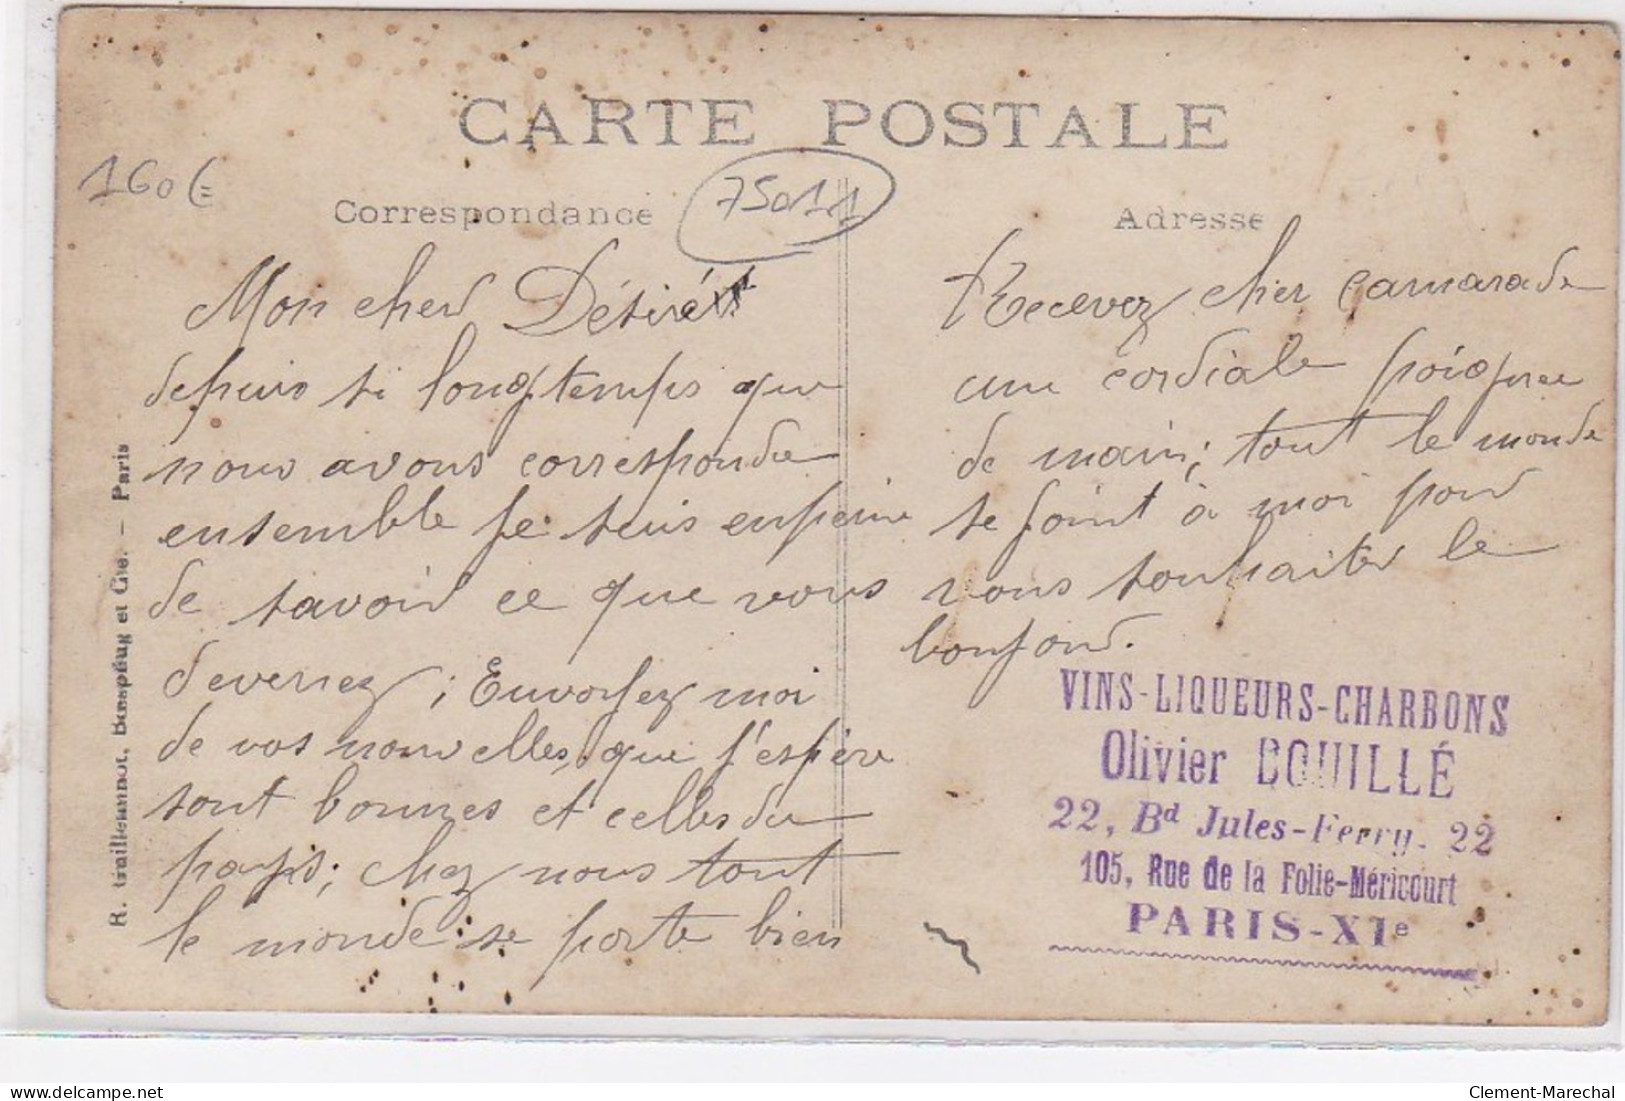 CARTE POSTALE
160€
75011
Correspondance
Mon cher Désiré
depuis si longtemps que
nous avons correspondu
ensemble je suis enpeine
de savoir ce que vous
devenez; Envoyez moi
de vos nouvelles, que j'espère
sont bonnes et celles du
pays; chez nous tout
le monde se porte bien
Adresse
Recevez cher camarade
une cordiale poignee
de main; tout le monde
se joint à moi pour
vous souhaiter le
bonjour.
VINS-LIQUEURS-CHARBONS
Olivier BOUILLÉ
22, Bd Jules-Ferry. 22
105, Rue de la Folie-Méricourt
PARIS-XIe
R. et Cie. — Paris
delcampe.net
Clement-Marechal